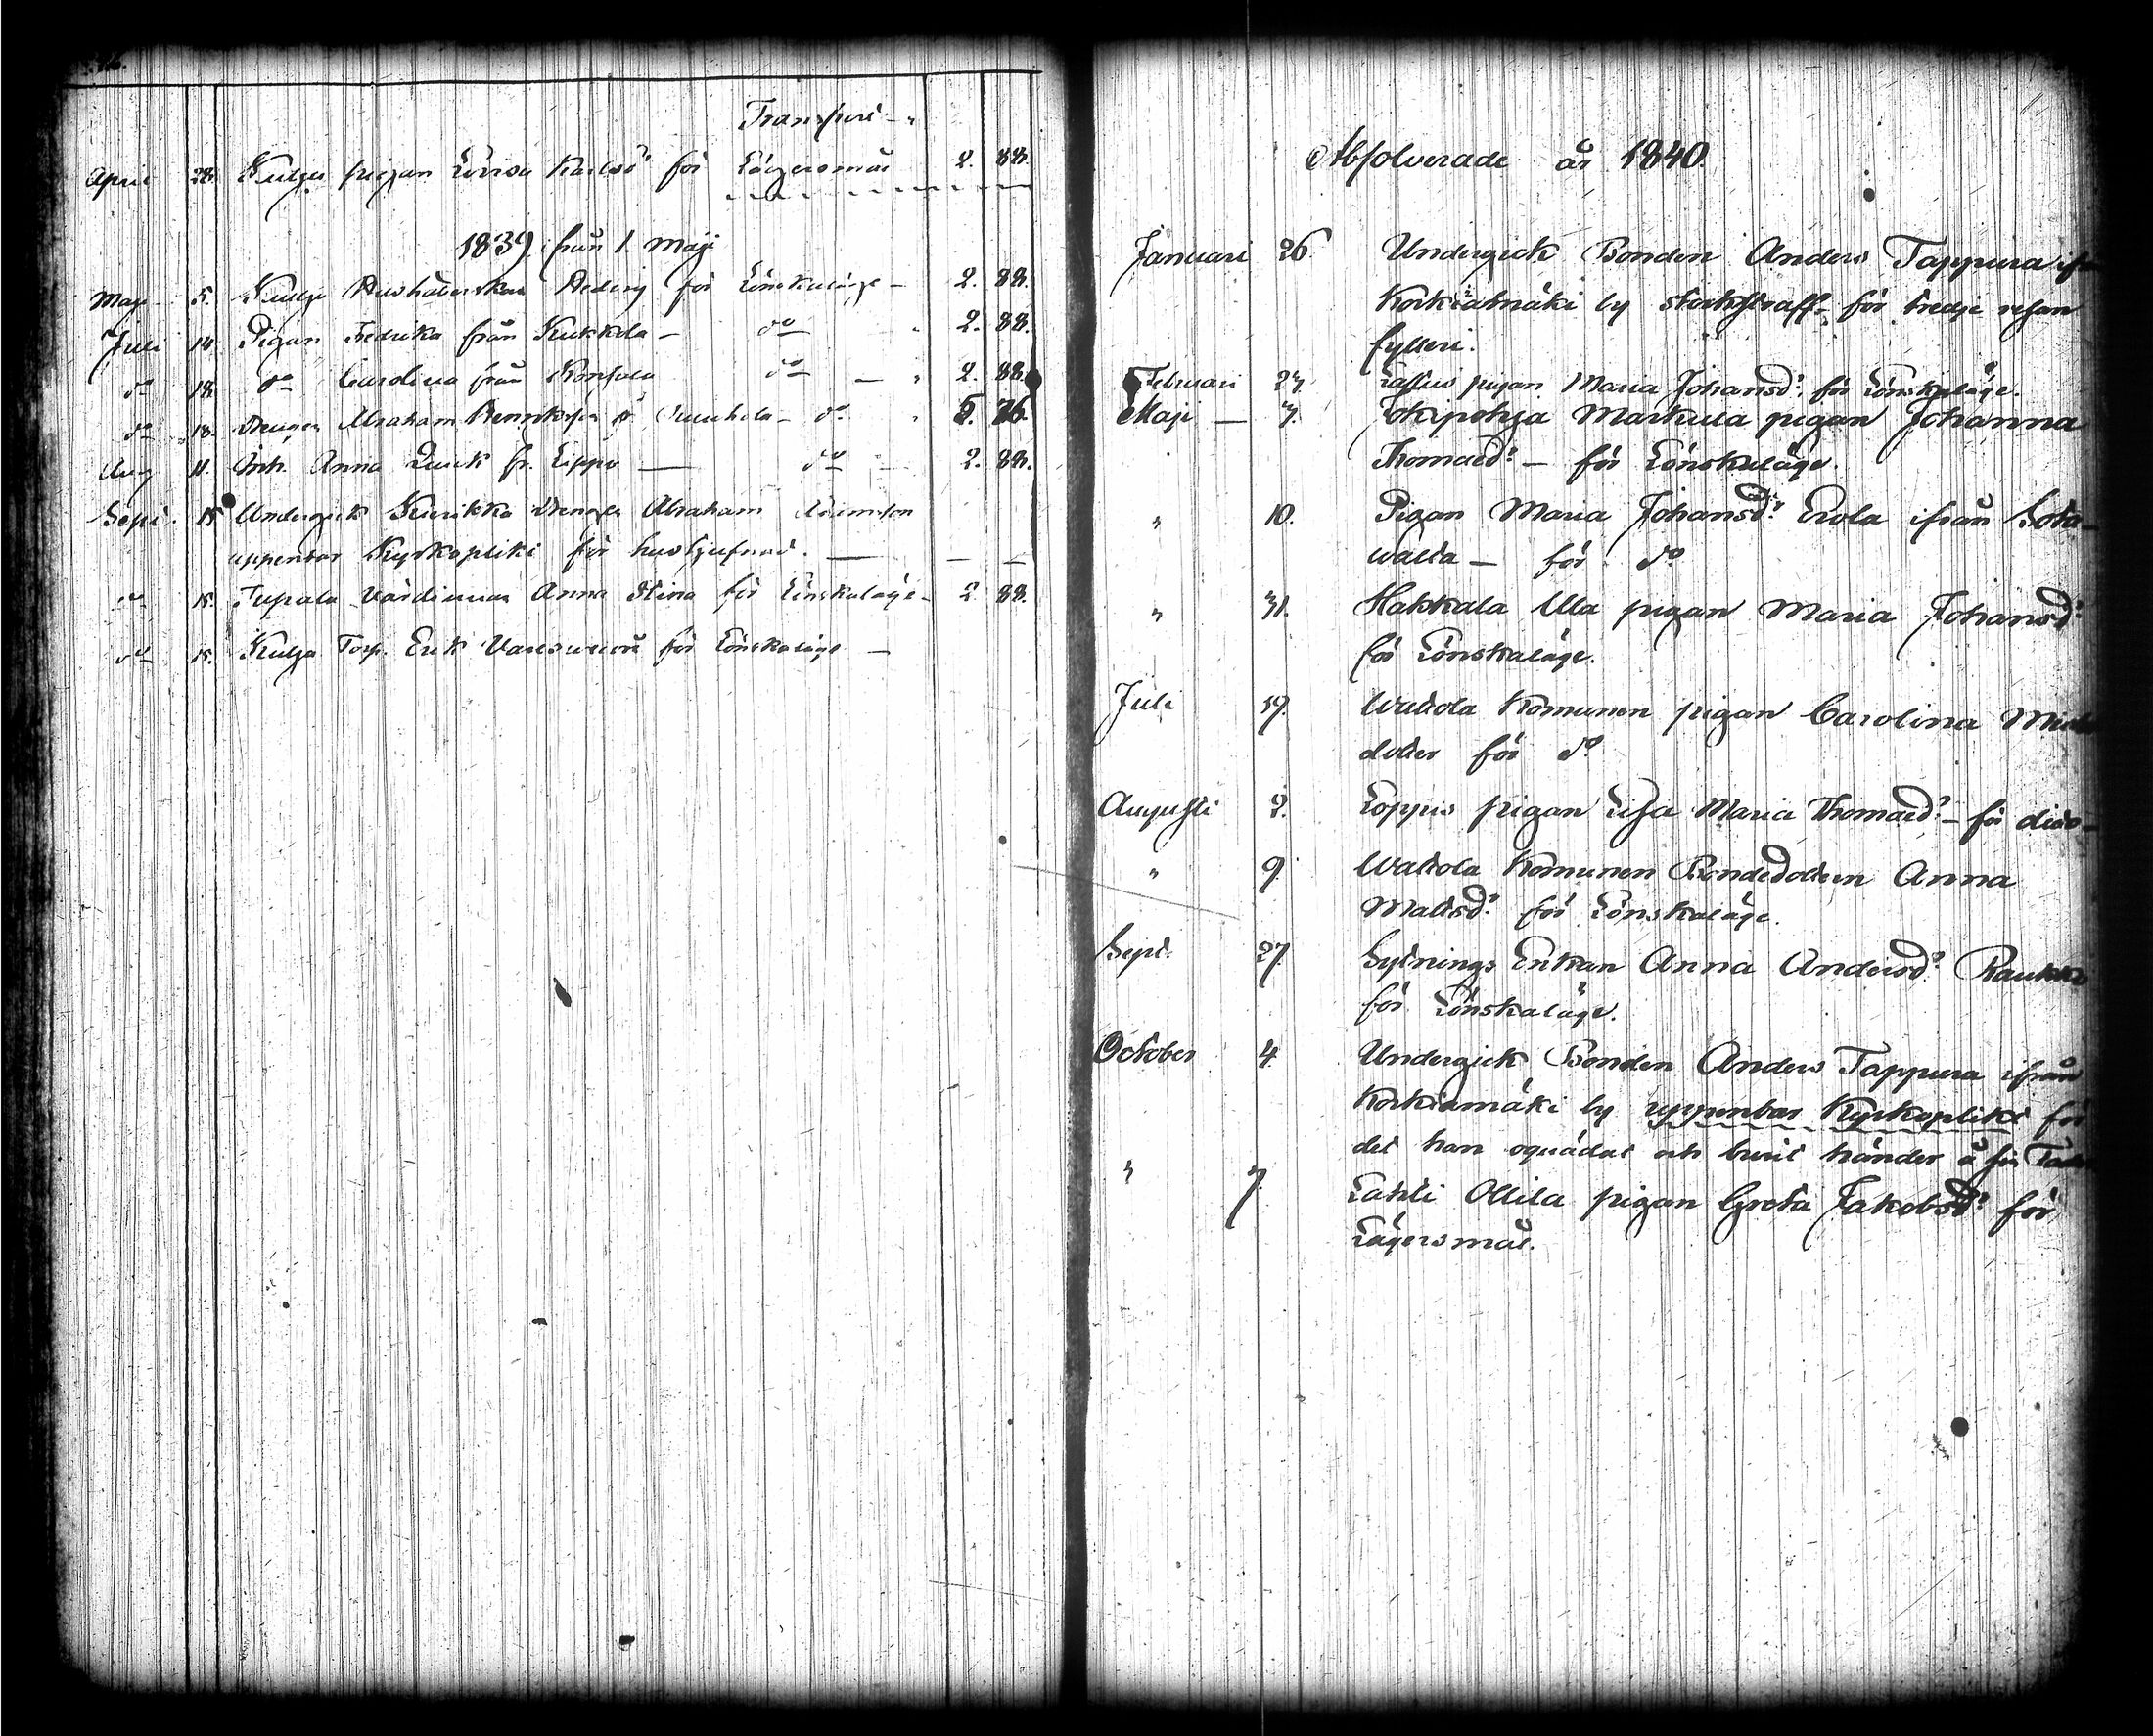 Transport
April 28. Kulju pigan Lovisa Karlsd: för Lägersmål 2. 88.
1839. från 1. Maji
Maji 5. Kulju Hushållerskan Heding för Lönskaläge 2. 88.
Juli 14. Pigan Fredrika från Kukkola do 2. 88.
do 18. do Carolina från do 2. 88.
do 18. Drengen Abraham Henriksson do 5. 76.
Aug 11. Inh. Anna Quick fr. Lippo do 2. 88.
Sept. 15 Undergick Kurikka Drengen Abraham
uppenbar Kyrkoplikt för
do 15. Tupala Värdinnan Anna Stina för Lönskaläge 2 88.
do 15. Kulju Torp. Erik för Lönskaläge
Absolverade år 1840.
Januari 26 Undergick Bonden Anders Tappura
Korkiamäki by stockstraff för tredje resan
fylleri.
Februari 27. pigan Maria Johansd: för Lönskaläge.
Maji 7. Jokipohja Markula pigan Johanna
Thomasd: för Lönskaläge.
" 10. Pigan Maria Johansd: Erola ifrån Sota-
walta för do
" 31. Hakkala Ulla pigan Maria Johansd:
för Lönskaläge.
Juli 19. Wakola Komunen pigan Carolina
dotter för do
Augusti 2. Loppis pigan Lisa Maria Thomasd: för dito
" 9. Wakola Komunen Bondedottern Anna
Mattsd: för Lönskaläge.
Sept. 27. Sytnings Enkan Anna Andersd: Raukko
för Lönskaläge.
October 4. Undergick Bonden Anders Tappura ifrån
Korkiamäki by uppenbar Kyrkoplikt för
det han oquädat och burit händer å sin
" 7. Lahti Ollila pigan Greta Jakobsd: för
Lägersmål.